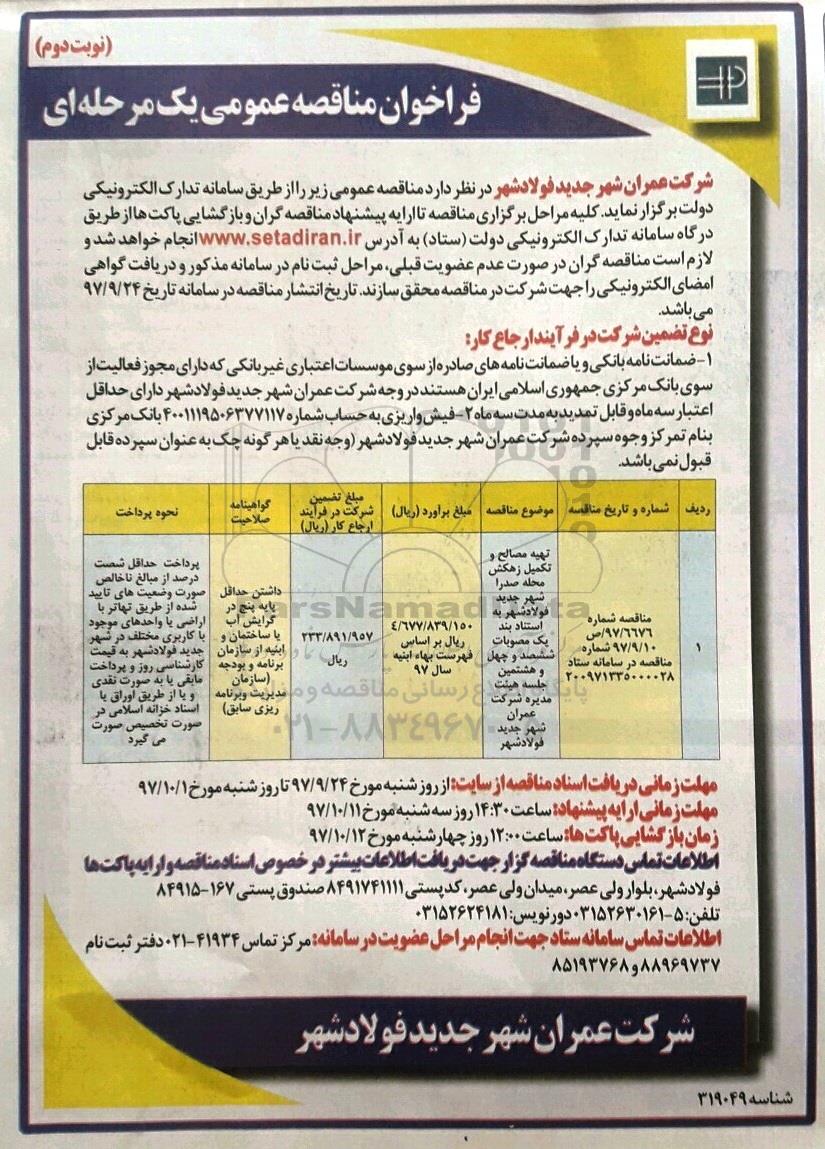 (نوبت دوم)
فراخوان مناقصه عمومی یک مرحله ای
شرکت عمران شهر جدید فولادشهر در نظر دارد مناقصه عمومی زیر را از طریق سامانه تدارک الکترونیکی
دولت برگزار نماید. کلیه مراحل برگزاری مناقصه تا ارایه پیشنهاد مناقصه گران و بازگشایی پاکت ها از طریق
درگاه سامانه تدارک الکترونیکی دولت (ستاد) به آدرس www.setadiran.ir انجام خواهد شد و
لازم است مناقصه گران در صورت عدم عضویت قبلی، مراحل ثبت نام در سامانه مذکور و دریافت گواهی
امضای الکترونیکی را جهت شرکت در مناقصه محقق سازند. تاریخ انتشار مناقصه در سامانه تاریخ ۹۷/۹/۲۴
می باشد.
نوع تضمین شرکت در فرآیند ارجاع کار:
۱- ضمانت نامه بانکی و یا ضمانت نامه های صادره از سوی موسسات اعتباری غیر بانکی که دارای مجوز فعالیت از
سوی بانک مرکزی جمهوری اسلامی ایران هستند در وجه شرکت عمران شهر جدید فولادشهر دارای حداقل
اعتبار سه ماه و قابل تمدید به مدت سه ماه ۲- فیش واریزی به حساب شماره ۴۰۰۱۱۱۹۵۰۶۳۷۷۱۱۷ بانک مرکزی
بنام تمرکز وجوه سپرده شرکت عمران شهر جدید فولادشهر (وجه نقد یا هر گونه چک به عنوان سپرده قابل
قبول نمی باشد.
ردیف
شماره و تاریخ مناقصه
موضوع مناقصه
مبلغ برآورد (ریال)
مبلغ تضمین
شرکت در فرآیند
ارجاع کار (ریال)
گواهینامه
صلاحیت
نحوه پرداخت
۱
مناقصه شماره
۹۷/۶۶۷۶/ص
۹۷/۹/۱۰ شماره
مناقصه در سامانه ستاد
۲۰۰۹۷۱۳۳۵۰۰۰۰۲۸
تهیه مصالح و
تکمیل زهکش
محله صدرا
شهر جدید
فولادشهر به
استناد بند
یک مصوبات
ششصد و چهل
و هشتمین
جلسه هیئت
مدیره شرکت
عمران
شهر جدید
فولادشهر
۴/۶۷۷/۸۳۹/۱۵۰
ریال بر اساس
فهرست بهاء ابنیه
سال ۹۷
۲۳۳/۸۹۱/۹۵۷
ریال
داشتن حداقل
پایه پنج در
گرایش آب
یا ساختمان و
ابنیه از سازمان
برنامه و بودجه
(سازمان
مدیریت وبرنامه
ریزی سابق)
پرداخت حداقل شصت
درصد از مبالغ ناخالص
صورت وضعیت های تایید
شده از طریق تهاتر با
اراضی یا واحدهای موجود
با کاربری مختلف در شهر
جدید فولادشهر به قیمت
کارشناسی روز و پرداخت
مابقی یا به صورت نقدی
و یا از طریق اوراق یا
اسناد خزانه اسلامی در
صورت تخصیص صورت
می گیرد
ParsNamadData
پایگاه اطلاع رسانی مناقصه و مزایده
۰۲۱-۸۸۳۴۹۶۷۰
مهلت زمانی دریافت اسناد مناقصه از سایت: از روز شنبه مورخ ۹۷/۹/۲۴ تا روز شنبه مورخ ۹۷/۱۰/۱
مهلت زمانی ارایه پیشنهاد: ساعت ۱۴:۳۰ روز سه شنبه مورخ ۹۷/۱۰/۱۱
زمان بازگشایی پاکت ها: ساعت ۱۲:۰۰ روز چهارشنبه مورخ ۹۷/۱۰/۱۲
اطلاعات تماس دستگاه مناقصه گزار جهت دریافت اطلاعات بیشتر در خصوص اسناد مناقصه و ارایه پاکت ها
فولادشهر، بلوار ولی عصر، میدان ولی عصر، کدپستی ۸۴۹۱۷۴۱۱۱۱ صندوق پستی ۱۶۷-۸۴۹۱۵
تلفن: ۵-۰۳۱۵۲۶۳۰۱۶۱ دورنویس: ۰۳۱۵۲۶۲۴۱۸۱
اطلاعات تماس سامانه ستاد جهت انجام مراحل عضویت در سامانه: مرکز تماس ۴۱۹۳۴-۰۲۱ دفتر ثبت نام
۸۸۹۶۹۷۳۷ و ۸۵۱۹۳۷۶۸
شرکت عمران شهر جدید فولادشهر
شناسه ۳۱۹۰۴۹